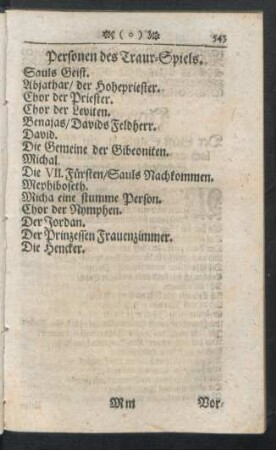 (o) 545
Personen des Traur-Spiels.
Sauls Geist.
Abjathar/ der Hohepriester.
Chor der Priester.
Chor der Leviten.
Benajas/ Davids Feldherr.
David.
Die Gemeine der Gibeoniten.
Michal.
Die VII. Fürsten/ Sauls Nachkommen.
Mephiboseth.
Micha eine stumme Person.
Chor der Nymphen.
Der Jordan.
Der Prinzessen Frauenzimmer.
Die Hencker.
Mm Vor-